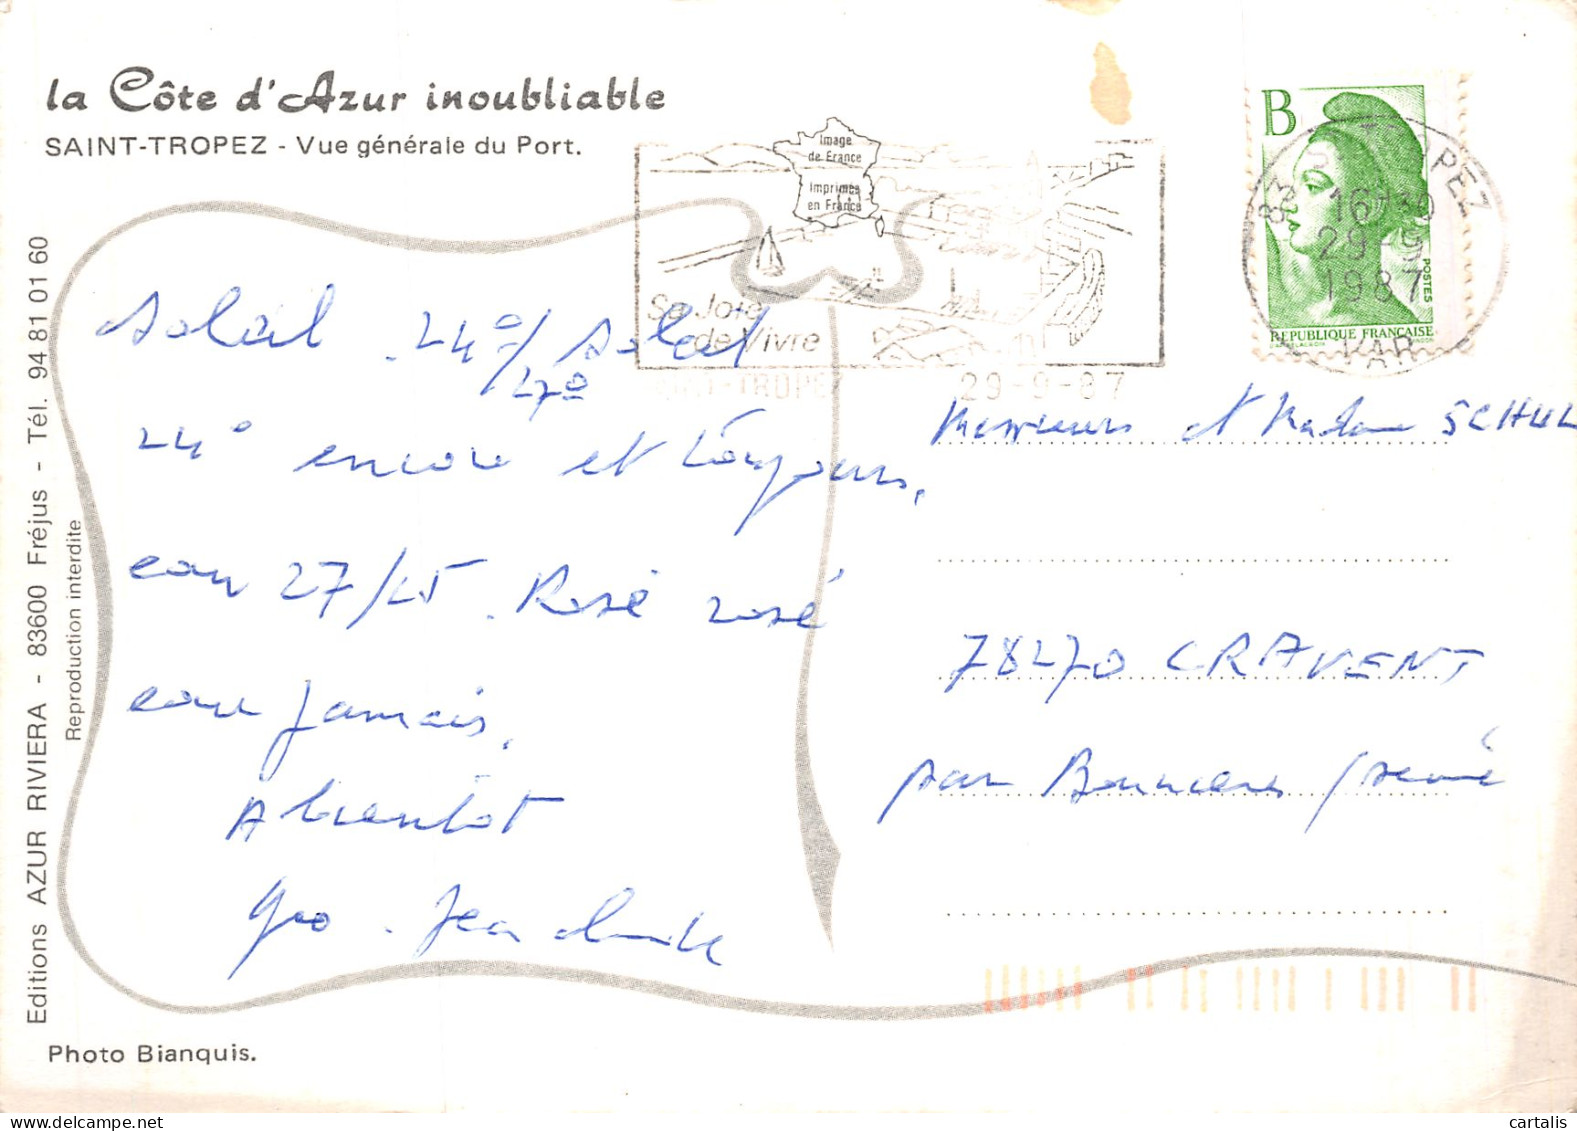 la Côte d'Azur inoubliable
SAINT-TROPEZ - Vue générale du Port.
Image
de France
Imprimés
en France
Sa Joie
de Vivre
29-9-87
B
83 TROPEZ
16H30
29 9
1987
VAR
POSTES
REPUBLIQUE FRANÇAISE
Soleil . 24°/ Soleil
27°
24° encore et toujours,
eau 27/25 . Rosé rosé
eau jamais.
A bientôt
Jean claude
Messieurs et Madame SCHUL
78270 CRAVENT
par Bonnieres / seine
Editions AZUR RIVIERA - 83600 Fréjus - Tél. 94 81 01 60
Reproduction interdite
Photo Bianquis.
cartalis